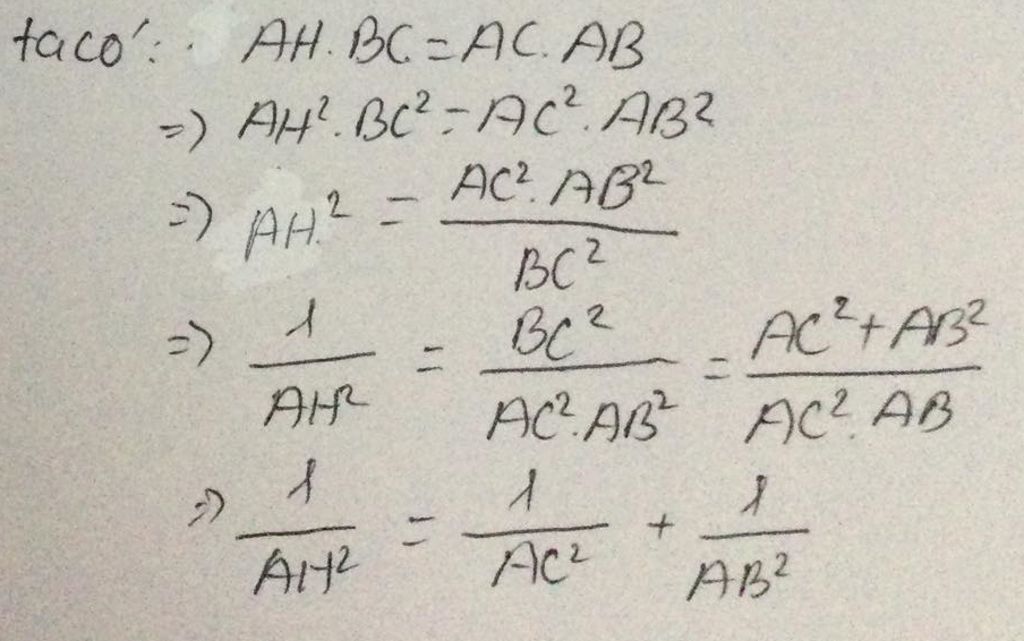 ta có: AH.BC = AC.AB
=) AH².BC² = AC².AB²
=) AH² = AC².AB² / BC²
=) 1 / AH² = BC² / AC².AB² = AC² + AB² / AC².AB
=) 1 / AH² = 1 / AC² + 1 / AB²